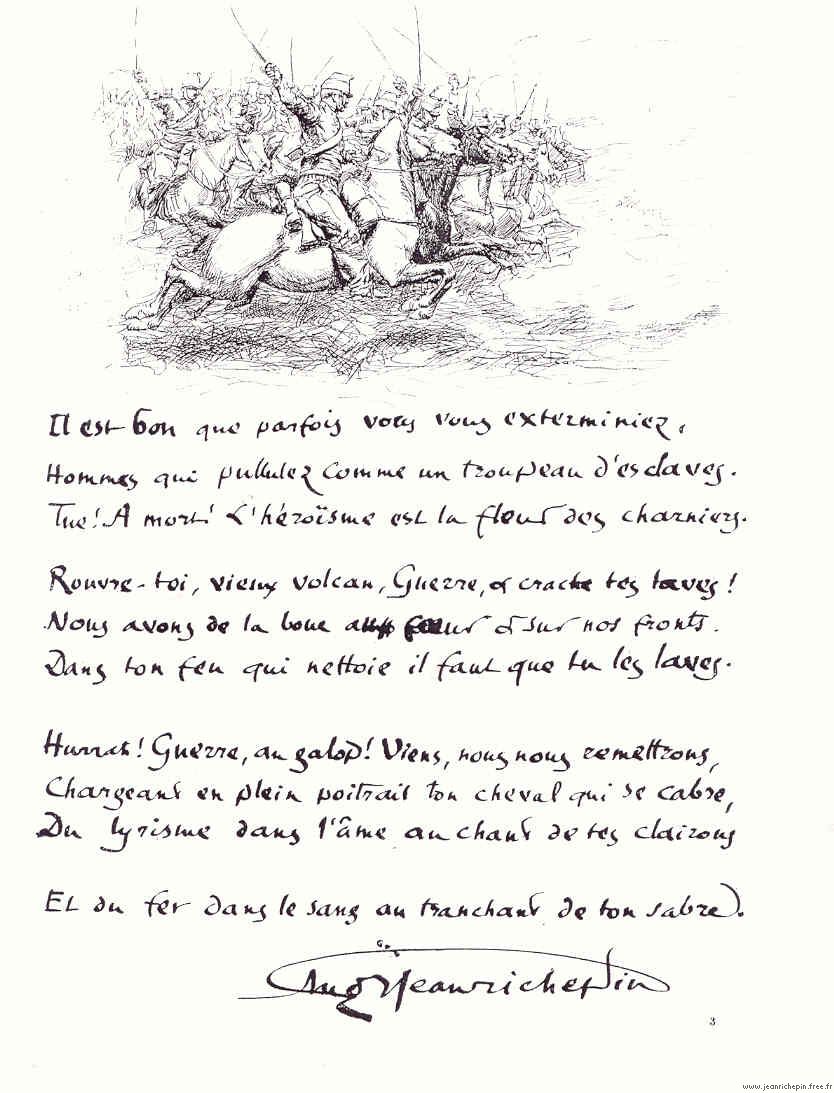 Il est bon que parfois vous vous exterminiez,
Hommes qui pullulez comme un troupeau d'esclaves.
Tue! A mort! L'héroïsme est la fleur des charniers.
Rouvre-toi, vieux volcan, Guerre, & crache tes laves!
Nous avons de la boue au cœur & sur nos fronts.
Dans ton feu qui nettoie il faut que tu les laves.
Hurrah! Guerre, au galop! Viens, nous nous remettrons,
Chargeant en plein poitrail ton cheval qui se cabre,
Du lyrisme dans l'âme au chant de tes clairons
Et du fer dans le sang au tranchant de ton sabre.
jeanrichepin
3
www.jeanrichepin.free.fr